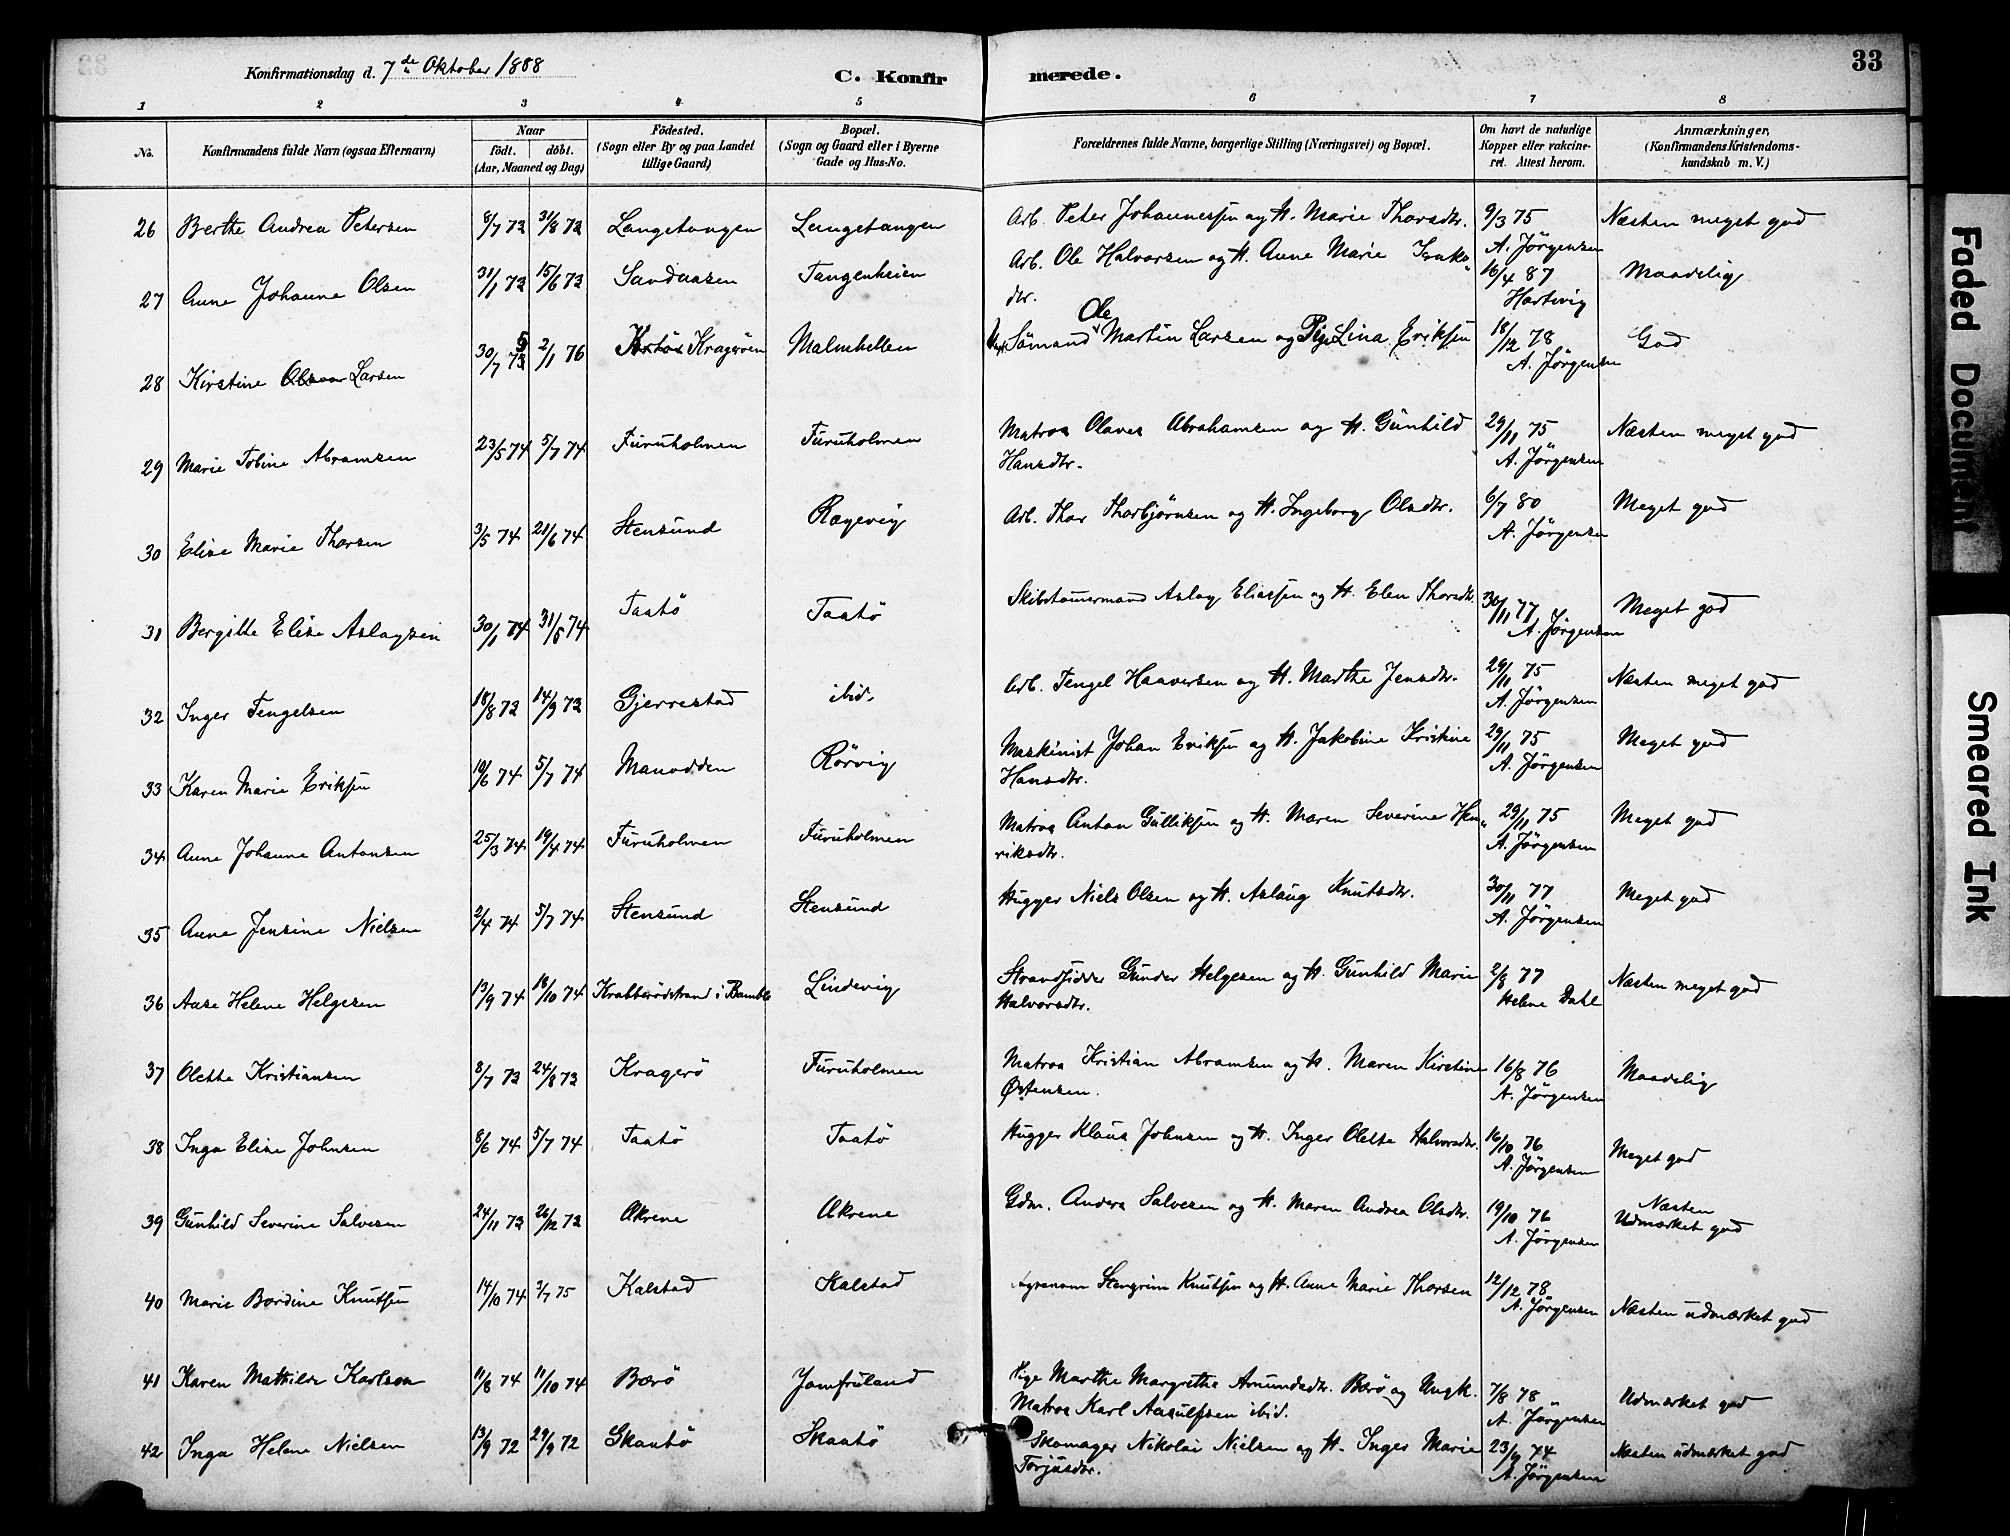 Konfirmationsdag d. 7de Oktober 1888
C. Konfir
merede.
33
1 2 3 4 5 6 7 8
No.
Konfirmandens fulde Navn (ogsaa Efternavn)
Naar
födt. döbt.
(Aar, Maaned og Dag)
Födested.
(Sogn eller By og paa Landet
tillige Gaard)
Bopæl.
(Sogn og Gaard eller i Byerne
Gade og Hus-No.
Forældrenes fulde Navne, borgerlige Stilling (Næringsvei) og Bopæl.
Om havt de naturlige
Kopper eller vakcine-
ret. Attest herom.
Anmærkninger,
(Konfirmandens Kristendoms-
kundskab m. V.)
26 Berthe Andrea Petersen 8/7 73 31/8 73 Langetangen Langetangen Arb. Peter Johannessen og H. Marie Thorsdtr. 9/3 75 Næsten meget god
A. Jörgensen
27 Anne Johanne Olsen 31/1 73 15/6 73 Sandaasen Tangenheien Arb. Ole Halvorsen og H. Anne Marie Isaks
dtr. 16/4 87 Maadelig
Hartvig
28 Kirstine Larsen 30/7 75 2/1 76 Krageröen Malmhellen Sömand Ole Martin Larsen og Pige Lina Eriksen 18/12 78 God
A. Jörgensen
29 Marie Tobine Abramsen 23/5 74 5/7 74 Furuholmen Furuholmen Matros Olaves Abrahamsen og H. Gunhild
Hansdtr. 29/11 75 Næsten meget god
A. Jörgensen
30 Elise Marie Thorsen 3/5 74 21/6 74 Stensund Rægevig Arb. Thor Thorbjörnsen og H. Ingeborg Olsdtr. 6/7 80 Meget god
A. Jörgensen
31 Bergitte Elise Aslagsen 30/1 74 31/5 74 Taatö Taatö Skibstömermand Aslag Eliassen og H. Elen Thorsdtr. 30/11 77 Meget god
A. Jörgensen
32 Inger Tengelsen 18/8 73 14/9 73 Gjerrestad ibid. Arb. Tengel Haaversen og H. Marthe Jensdtr. 29/11 75 Næsten meget god
A. Jörgensen
33 Karen Marie Eriksen 10/6 74 5/7 74 Manodden Rörvig Maskinist Johan Eriksen og H. Jakobine Kristine
Hansdtr. 29/11 75 Meget god
A. Jörgensen
34 Anne Johanne Antonsen 25/3 74 19/4 74 Furuholmen Furuholmen Matros Anton Gulliksen og H. Maren Severine Hen
riksdtr. 29/11 75 Meget god
A. Jörgensen
35 Anne Jensine Nielsen 2/4 74 5/7 74 Stensund Stensund Hugger Niels Olsen og H. Aslaug Knutsdtr. 30/11 77 Meget god
A. Jörgensen
36 Aase Helene Helgesen 13/9 74 18/10 74 Krabberödstrand i Bamble Lindevig Strandsidder Gunder Helgesen og H. Gunhild Marie
Halvorsdtr. 2/8 77 Næsten meget god
Helene Dahl
37 Olette Kristiansen 8/7 73 24/8 73 Kragerö Furuholmen Matros Kristian Abramsen og H. Maren Kirstine
Østensen. 16/8 76 Maadelig
A. Jörgensen
38 Inga Elise Johnsen 8/6 74 5/7 74 Taatö Taatö Hugger Klaus Johnsen og H. Inger Olette Halvorsdtr. 16/10 76 Meget god
A. Jörgensen
39 Gunhild Severine Salvesen 24/11 73 26/12 73 Akrene Akrene Gdm. Anders Salvesen og H. Maren Andrea Olsdtr. 19/10 76 Næsten
Udmærket god
A. Jörgensen
40 Marie Bordine Knutsen 14/10 74 3/7 75 Kalstad Kalstad Stengrim Knutsen og H. Anne Marie Thorsen 12/12 78 Næsten udmærket god
A. Jörgensen
41 Karen Mathilde Karlson 11/8 74 11/10 74 Berö Jomfruland Pige Marthe Margrethe Amundsdtr. Berö og Ungk.
Matros Karl Aasulfsen ibid. 7/8 78 Udmærket god
A. Jörgensen
42 Inga Helene Nielsen 13/9 72 29/9 72 Skaatö Skaatö Skomager Nikolai Nielsen og H. Inger Marie
Torjusdtr. 23/9 74 Næsten udmærket god
A. Jörgensen
Faded Document
Smeared Ink